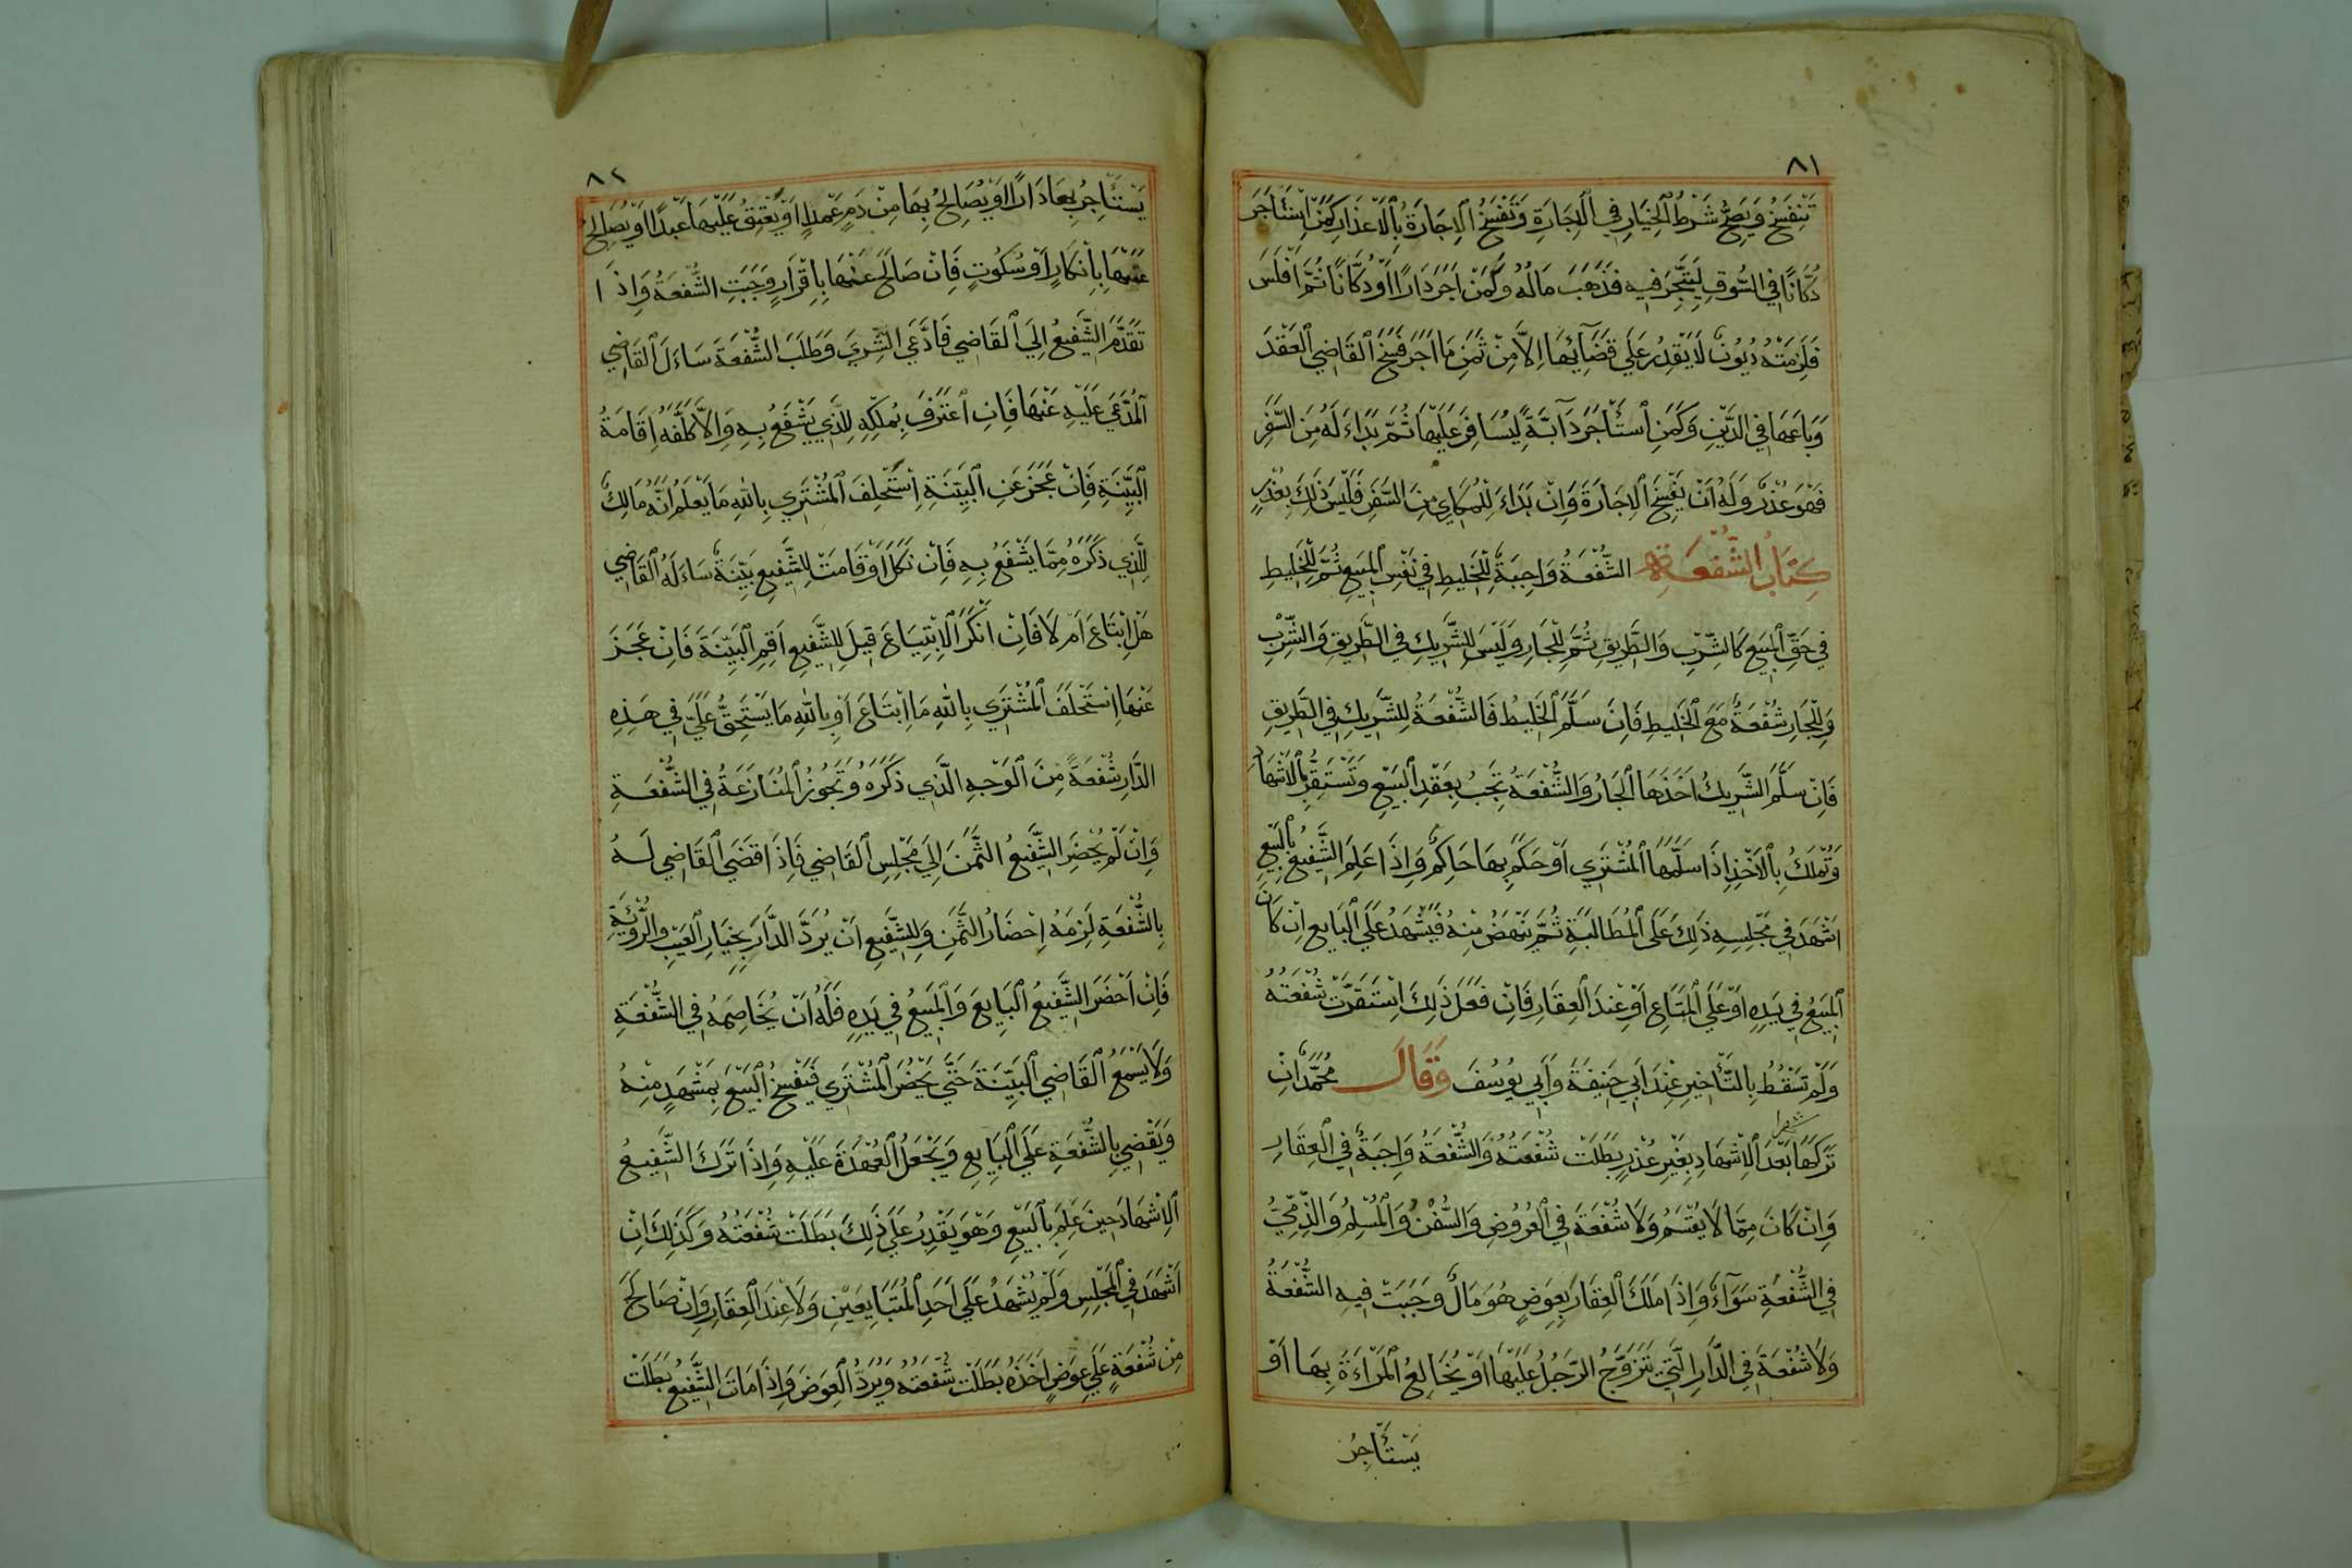 ٨١
تَنْفَسِخُ وَيَصِحُّ شَرْطُ الْخِيَارِ فِي الْاِجَارَةِ وَتَفْسَخُ الْاِجَارَةُ بِالْاَعْذَارِ كَمَنِ اسْتَأْجَرَ
دُكَّانًا فِي السُّوقِ لِيَتَّجِرَ فِيهِ فَذَهَبَ مَالُهُ وَكَمَنْ اَجَرَ دَارًا اَوْ دُكَّانًا ثُمَّ اَفْلَسَ
فَلَزِمَتْهُ دُيُونٌ لَا يَقْدِرُ عَلَي قَضَآئِهَا اِلَّا مِنْ ثَمَنِ مَا اَجَرَ فَسَخَ الْقَاضِي الْعَقْدَ
وَبَاعَهَا فِي الدَّيْنِ وَكَمَنِ اسْتَأْجَرَ دَآبَّةً لِيُسَافِرَ عَلَيْهَا ثُمَّ بَدَاءَ لَهُ مِنَ السَّفَرِ
فَهُوَ عُذْرٌ وَلَهُ اَنْ يَفْسَخَ الْاِجَارَةَ وَاِنْ بَدَاءَ لِلْمُكَارِي مِنَ السَّفَرِ فَلَيْسَ ذَلِكَ بِعُذْرٍ
كِتَابُ الشُّفْعَةِ الشُّفْعَةُ وَاجِبَةٌ لِلْخَلِيطِ فِي نَفْسِ الْمَبِيعِ ثُمَّ لِلْخَلِيطِ
فِي حَقِّ الْمَبِيعِ كَالشِّرْبِ وَالطَّرِيقِ ثُمَّ لِلْجَارِ وَلَيْسَ لِلشَّرِيكِ فِي الطَّرِيقِ وَالشِّرْبِ
وَلِلْجَارِ شُفْعَةٌ مَعَ الْخَلِيطِ فَاِنْ سَلَّمَ الْخَلِيطُ فَالشُّفْعَةُ لِلشَّرِيكِ فِي الطَّرِيقِ
فَاِنْ سَلَّمَ الشَّرِيكُ اَخَذَهَا الْجَارُ وَالشُّفْعَةُ تَجِبُ بِعَقْدِ الْبَيْعِ وَتَسْتَقِرُّ بِالْاِشْهَادِ
وَتُمْلَكُ بِالْاَخْذِ اِذَا سَلَّمَهَا الْمُشْتَرِي اَوْ حَكَمَ بِهَا حَاكِمٌ وَاِذَا عَلِمَ الشَّفِيعُ بِالْبَيْعِ
اَشْهَدَ فِي مَجْلِسِهِ ذَلِكَ عَلَي الْمُطَالَبَةِ ثُمَّ يَنْهَضُ مِنْهُ فَيَشْهَدُ عَلَي الْبَايِعِ اِنْ كَانَ
الْمَبِيعُ فِي يَدِهِ اَوْ عَلَي الْمُبْتَاعِ اَوْ عِنْدَ الْعِقَارِ فَاِنْ فَعَلَ ذَلِكَ اِسْتَقَرَّتْ شُفْعَتُهُ
وَلَمْ تَسْقُطْ بِالتَّأْخِيرِ عِنْدَ اَبِي حَنِيفَةَ وَاَبِي يُوسُفَ وَقَالَ مُحَمَّدٌ اِنْ
تَرَكَهَا بَعْدَ الْاِشْهَادِ بِغَيْرِ عُذْرٍ بَطَلَتْ شُفْعَتُهُ وَالشُّفْعَةُ وَاجِبَةٌ فِي الْعِقَارِ
وَاِنْ كَانَ مِمَّا لَا يُقْسَمُ وَلَا شُفْعَةَ فِي الْعُرُوضِ وَالسُّفُنِ وَالْمُسْلِمُ وَالذِّمِّيُّ
فِي الشُّفْعَةِ سَوَآءٌ وَاِذَا مَلَكَ الْعِقَارَ بِعِوَضٍ هُوَ مَالٌ وَجَبَتْ فِيهِ الشُّفْعَةُ
وَلَا شُفْعَةَ فِي الدَّارِ الَّتِي تَزَوَّجُ الرَّجُلُ عَلَيْهَا اَوْ يُخَالِعُ الْمَرْاَةَ بِهَا اَوْ
يَسْتَأْجِرُ
٨٢
يَسْتَأْجِرُ بِهَا دَارًا اَوْ يُصَالِحُ بِهَا مِنْ دَمٍ عَمْدٍ اَوْ يُعْتِقُ عَلَيْهَا عَبْدًا اَوْ يُصَالِحُ
عَنْهَا بِاِنْكَارٍ اَوْ سُكُوتٍ فَاِنْ صَالَحَ عَنْهَا بِاِقْرَارٍ وَجَبَتِ الشُّفْعَةُ وَاِذَا
تَقَدَّمَ الشَّفِيعُ اِلَي الْقَاضِي فَادَّعَي الشِّرَي وَطَلَبَ الشُّفْعَةَ سَاءَلَ الْقَاضِي
الْمُدَّعَي عَلَيْهِ عَنْهَا فَاِنِ اعْتَرَفَ بِمُلْكِهِ الَّذِي يَشْفَعُ بِهِ وَاِلَّا كَلَّفَهُ اِقَامَةَ
الْبَيِّنَةِ فَاِنْ عَجَزَ عَنِ الْبَيِّنَةِ اِسْتَحْلِفَ الْمُشْتَرِي بِاللهِ مَا يَعْلَمُ اَنَّهُ مَالِكٌ
لِلَّذِي ذَكَرَهُ مِمَّا يَشْفَعُ بِهِ فَاِنْ نَكَلَ اَوْ قَامَتْ لِلشَّفِيعِ بَيِّنَةٌ سَاءَلَهُ الْقَاضِي
هَلِ ابْتَاعَ اَمْ لَا فَاِنْ اَنْكَرَ الْاِبْتِيَاعَ قِيلَ لِلشَّفِيعِ اَقِمِ الْبَيِّنَةَ فَاِنْ عَجَزَ
عَنْهَا اِسْتَحْلَفَ الْمُشْتَرِي بِاللهِ مَا اِبْتَاعَ اَوْ بِاللهِ مَا يَسْتَحِقُّ عَلَيَّ فِي هَذِهِ
الدَّارِ شُفْعَةً مِنَ الْوَجْهِ الَّذِي ذَكَرَهُ وَتَجُوزُ الْمُنَازَعَةُ فِي الشُّفْعَةِ
وَاِنْ لَمْ يُحْضِرِ الشَّفِيعُ الثَّمَنَ اِلَي مَجْلِسِ الْقَاضِي فَاِذَا قَضَي الْقَاضِي لَهُ
بِالشُّفْعَةِ لَزِمَهُ اِحْضَارُ الثَّمَنِ وَلِلشَّفِيعِ اَنْ يَرُدَّ الدَّارَ بِخِيَارِ الْعَيْبِ وَالرُّؤْيَةِ
فَاِنْ اَحْضَرَ الشَّفِيعُ الْبَايِعَ وَالْمَبِيعُ فِي يَدِهِ فَلَهُ اَنْ يُخَاصِمَهُ فِي الشُّفْعَةِ
وَلَا يَسْمَعُ الْقَاضِي الْبَيِّنَةَ حَتَّي يَحْضُرَ الْمُشْتَرِي فَيَفْسَخُ الْبَيْعَ بِمَشْهَدٍ مِنْهُ
وَيَقْضِي بِالشُّفْعَةِ عَلَي الْبَايِعِ وَيَجْعَلُ الْعُهْدَةَ عَلَيْهِ وَاِذَا تَرَكَ الشَّفِيعُ
الْاِشْهَادَ حِينَ عَلِمَ بِالْبَيْعِ وَهُوَ يَقْدِرُ عَلَي ذَلِكَ بَطَلَتْ شُفْعَتُهُ وَكَذَلِكَ اِنْ
اَشْهَدَ فِي الْمَجْلِسِ وَلَمْ يُشْهِدْ عَلَي اَحَدِ الْمُتَبَايِعَيْنِ وَلَا عِنْدَ الْعِقَارِ وَاِنْ صَالَحَ
مِنْ شُفْعَةٍ عَلَي عِوَضٍ اَخَذَهُ بَطَلَتْ شُفْعَتُهُ وَيَرُدُّ الْعِوَضَ وَاِذَا مَاتَ الشَّفِيعُ بَطَلَتْ